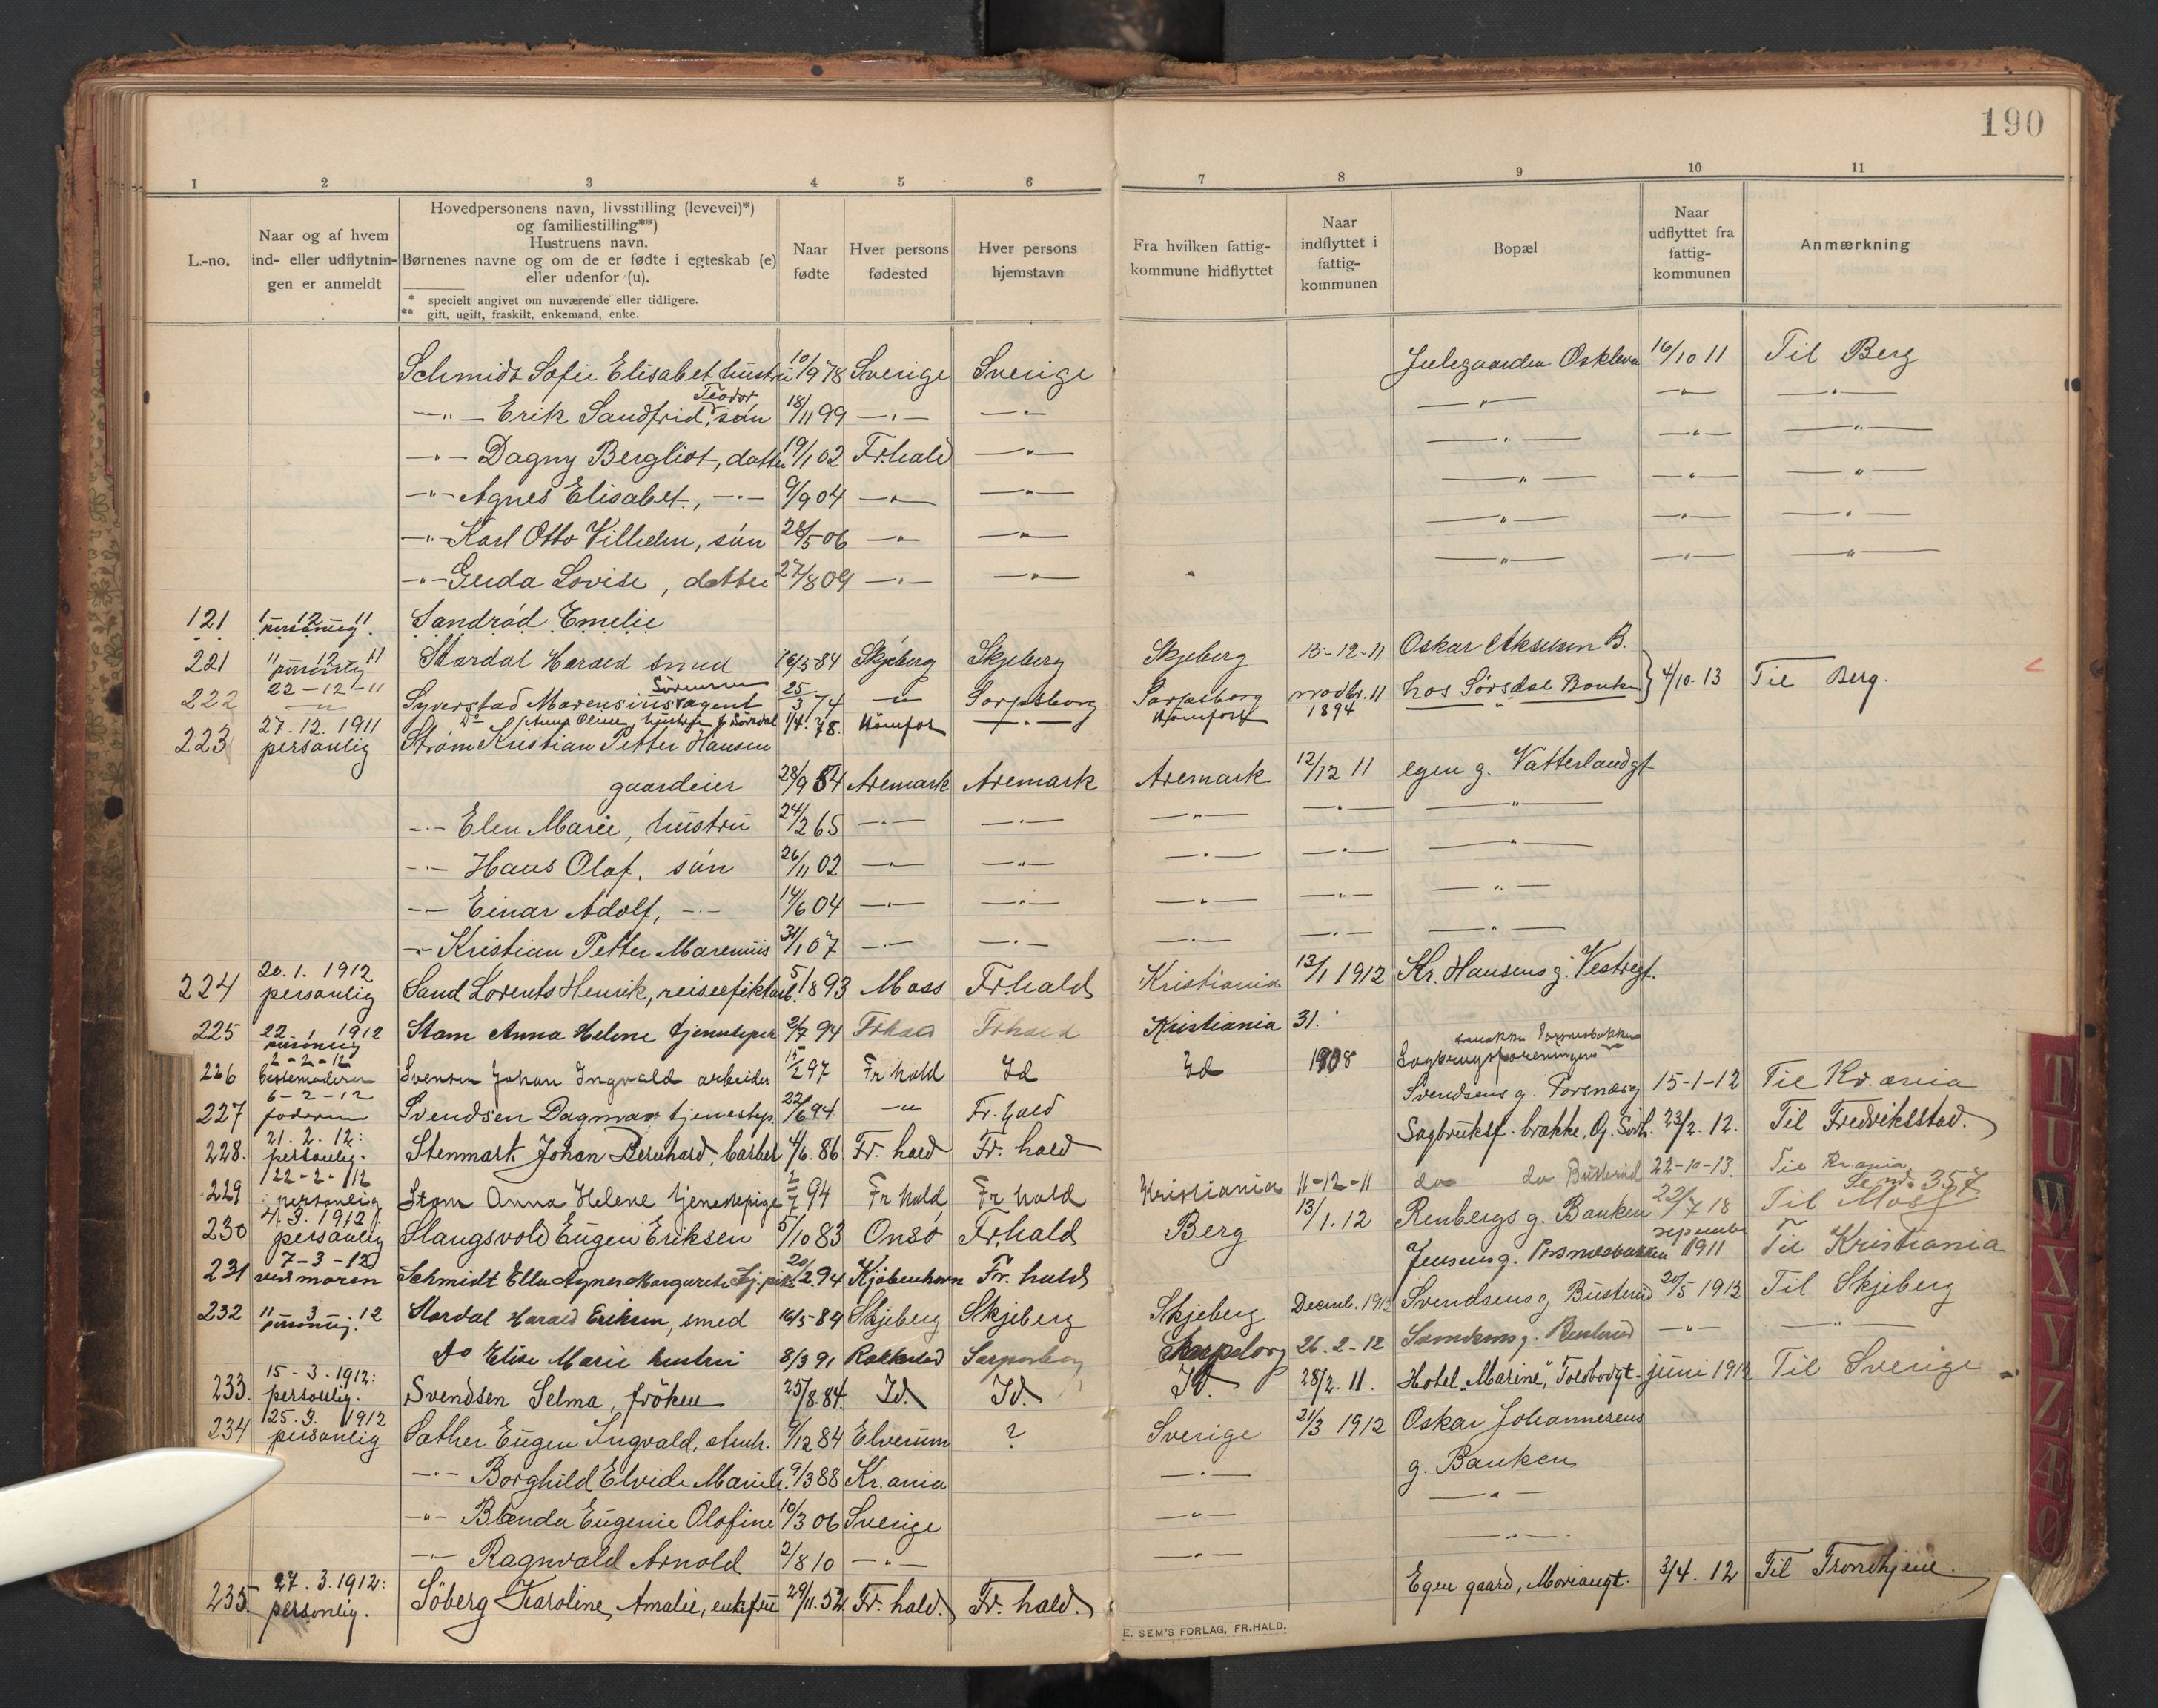 190
1 2 3 4 5 6 7 8 9 10 11
L.-no.
Naar og af hvem ind- eller udflytnin- gen er anmeldt
Hovedpersonens navn, livsstilling (levevei)*)
og familiestilling**)
Hustruens navn.
Børnenes navne og om de er fødte i egteskab (e)
eller udenfor (u).
* specielt angivet om nuværende eller tidligere.
** gift, ugift, fraskilt, enkemand, enke.
Naar fødte
Hver persons fødested
Hver persons hjemstavn
Fra hvilken fattig- kommune hidflyttet
Naar indflyttet i fattig- kommunen
Bopæl
Naar udflyttet fra fattig- kommunen
Anmærkning
Schmidt Sofie Elisabet hustru 10/9 78 Sverige Sverige 16/10 11 Til Berg
—"— Erik Sandfrid Teodor, søn 18/11 99 —"— —"— —"— —"— —"—
—"— Dagny Bergliot, datter 19/1 02 Fr.hald —"— —"— —"— —"—
—"— Agnes Elisabet, —"— 6/9 04 —"— —"— —"— —"— —"—
—"— Karl Otto Vilhelm, søn 28/5 06 —"— —"— —"— —"— —"—
—"— Gerda Lovise, datter 27/8 09 —"— —"— —"— —"— —"—
121 1-12-11 personlig. Sandrød Emelie
221 11-12-11 personlig Stordal Harald smed 16/5 84 Skjeberg Skjeberg Skjeberg 13-12-11 Oskar Akselsen B.
222 22-12-11 —"— Syverstad Marensius Sørensen agent 25/3 74 —"— Sarpsborg Sarpsborg novbr. 11 hos Sørsdal Banken 4/10.13 Til Berg.
Do Anna Oline, 1/4.78. —"— 1894 —"—
223 27.12.1911 personlig Strøm Kristian Petter Hansen
gaardeier 28/9 54 Aremark Aremark Aremark 12/12 11 egen g. Vatterlandgt
—"— Elen Marie, hustru 24/2 65 —"— —"— —"— —"— —"—
—"— Hans Olaf, søn 26/11 02 —"— —"— —"— —"— —"—
—"— Einar Adolf, —"— 14/6 04 —"— —"— —"— —"— —"—
—"— Kristian Petter Marenius 31/1 07 —"— —"— —"— —"— —"—
224 20.1.1912 personlig Sand Lorents Henrik, 5/1 893 Moss Fr.hald Kristiania 13/1 1912 Kr. Hansens g. Vestregt.
225 22.1.1912 personlig Stam Anna Helene tjenestepige 2/7 94 Frhald Frhald Kristiania 31.
226 2-2-12 bestemoderen Svensen Johan Ingvald arbeider 15/2 97 Fr hald Id Id 1908 Sagbrugsforeningens
227 6-2-12 faderen Svendsen Dagmar tjenestep. 22/6 94 —"— Fr. hald Svendsens g. Torsnæsg 15-1-12 Til Kr.ania
228. 21.2.12: personlig. Stenmark Johan Bernhard, barber 4/6. 86. Fr. hald Fr. hald Sagbruksf. brakke, 23/2. 12. Til Fredriksstad.
229 22-2-12 personlig Stam Anna Helene tjenestepige 2/7 94 Fr hald Fr hald Kristiania 11-12-11 do do Busterud 22-10-13. Til Kr.ania, Se no 357
230 4.3.1912 personlig Slangsvold Eugen Eriksen 5/10 83 Onsø Frhald Berg 13/1.12 Renbergs g. Banken 22/7 18 Til Moss
231 7-3-12 ved moren Schmidt Ella Agnes Margarete tj.pike 20/2 94 Kjøbenhavn Fr. hald Jensens g. september 1911 Til Kristiania
232 11-3-12 personlig. Stordal Harald Eriksen, smed 16/5 84 Skjeberg Skjeberg Skjeberg Decemb. 1912 Svendsens g Busterud 20/5 1913 Til Skjeberg
Do Elise Marie hustru 8/3 91 Rakkestad Sarpsborg Sarpsborg 26.2-12 —"— —"—
233. 15-3-1912: personlig. Svendsen Selma, frøken 25/8.84. Id. Id. Id. 28/2. 11. Hotel „Marine", Toldbodgt. juni 1912 Til Sverige
234 25.3.1912 personlig Sather Eugen Ingvald, stenh. 9/12 84 Elverum ? Sverige 21/3 1912 Oskar Johannesens
—"— Borghild Elvide Marie h. 9/3 88 Kr.ania —"— g. Banken
—"— Blenda Eugenie Olofine 10/3 06 Sverige —"— —"—
—"— Ragnvald Arnold 2/8 10 —"— —"— —"—
235. 27.3.1912: personlig. Söberg Karoline Amalie, enkefru 29/11.52 Fr. hald. Fr. hald. Egen gaard, 3/4. 12 Til Trondhjem.
E. SEM'S FORLAG, FR.HALD.
T
U
W
X
Y
Z
Æ
Ø